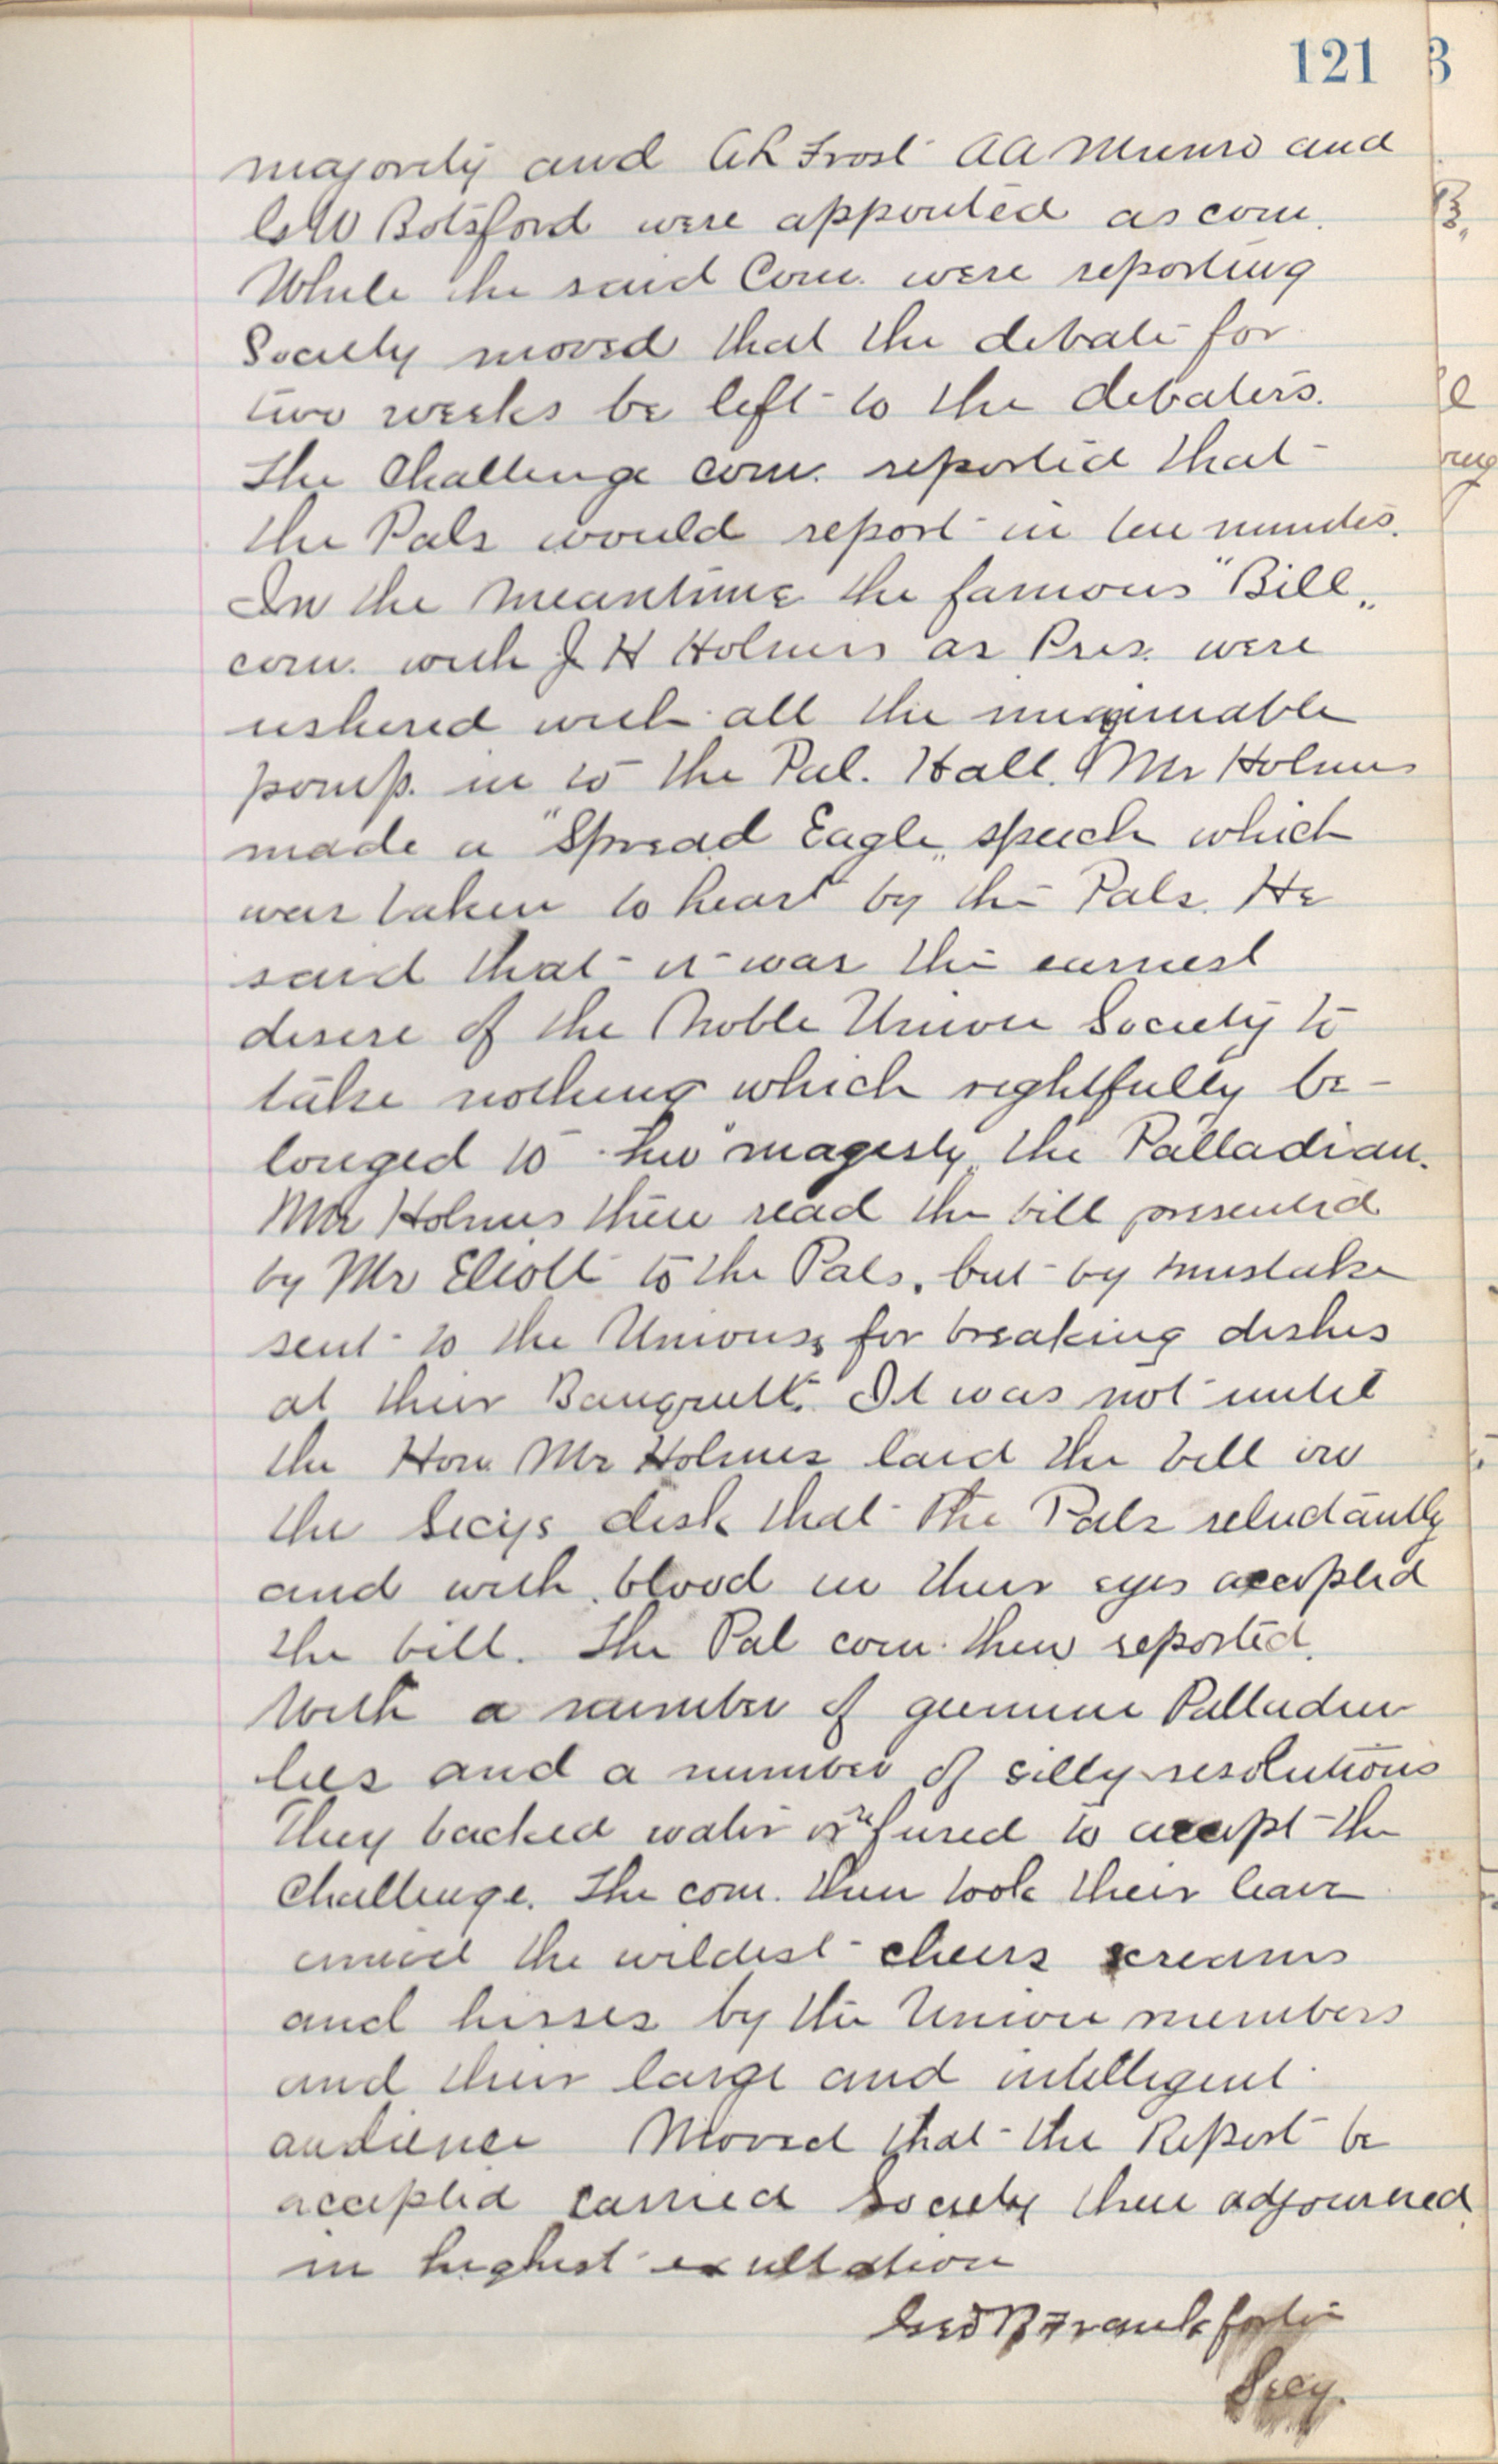 121 3
majority and A L Frost A A Munro and
C W Botsford were appointed as com.
While the said Com. were reporting
Society moved that the debate for
two weeks be left to the debaters.
The Challenge com. reported that
the Pals would report in ten minutes.
In the meantime the famous "Bill"
com. with J H Holmes as Pres. were
ushered with all the imaginable
pomp. in to the Pal. Hall. Mr Holmes
made a "Spread Eagle" speech which
was taken to heart by the Pals. He
said that it was the earnest
desire of the Noble Union Society to
take nothing which rightfully be-
longed to her "magesty" the Palladian.
Mr Holmes then read the bill presented
by Mr Eliott to the Pals, but by mistake
sent to the Unions, for breaking dishes
at their Banquett. It was not until
the Hon Mr Holmes laid the bill on
the Secys desk that the Pals reluctantly
and with blood in their eyes accepted
the bill. The Pal com. then reported.
With a number of genuine Palladian
lies and a number of silly resolutions
They backed water & refused to accept the
Challenge. The com. then took their leave
amid the wildest cheers screams
and hisses by the Union members
and their large and intelligent
audience Moved that the Report be
accepted carried Society then adjourned
in highest exultation
Geo B Frankforter
Secy.